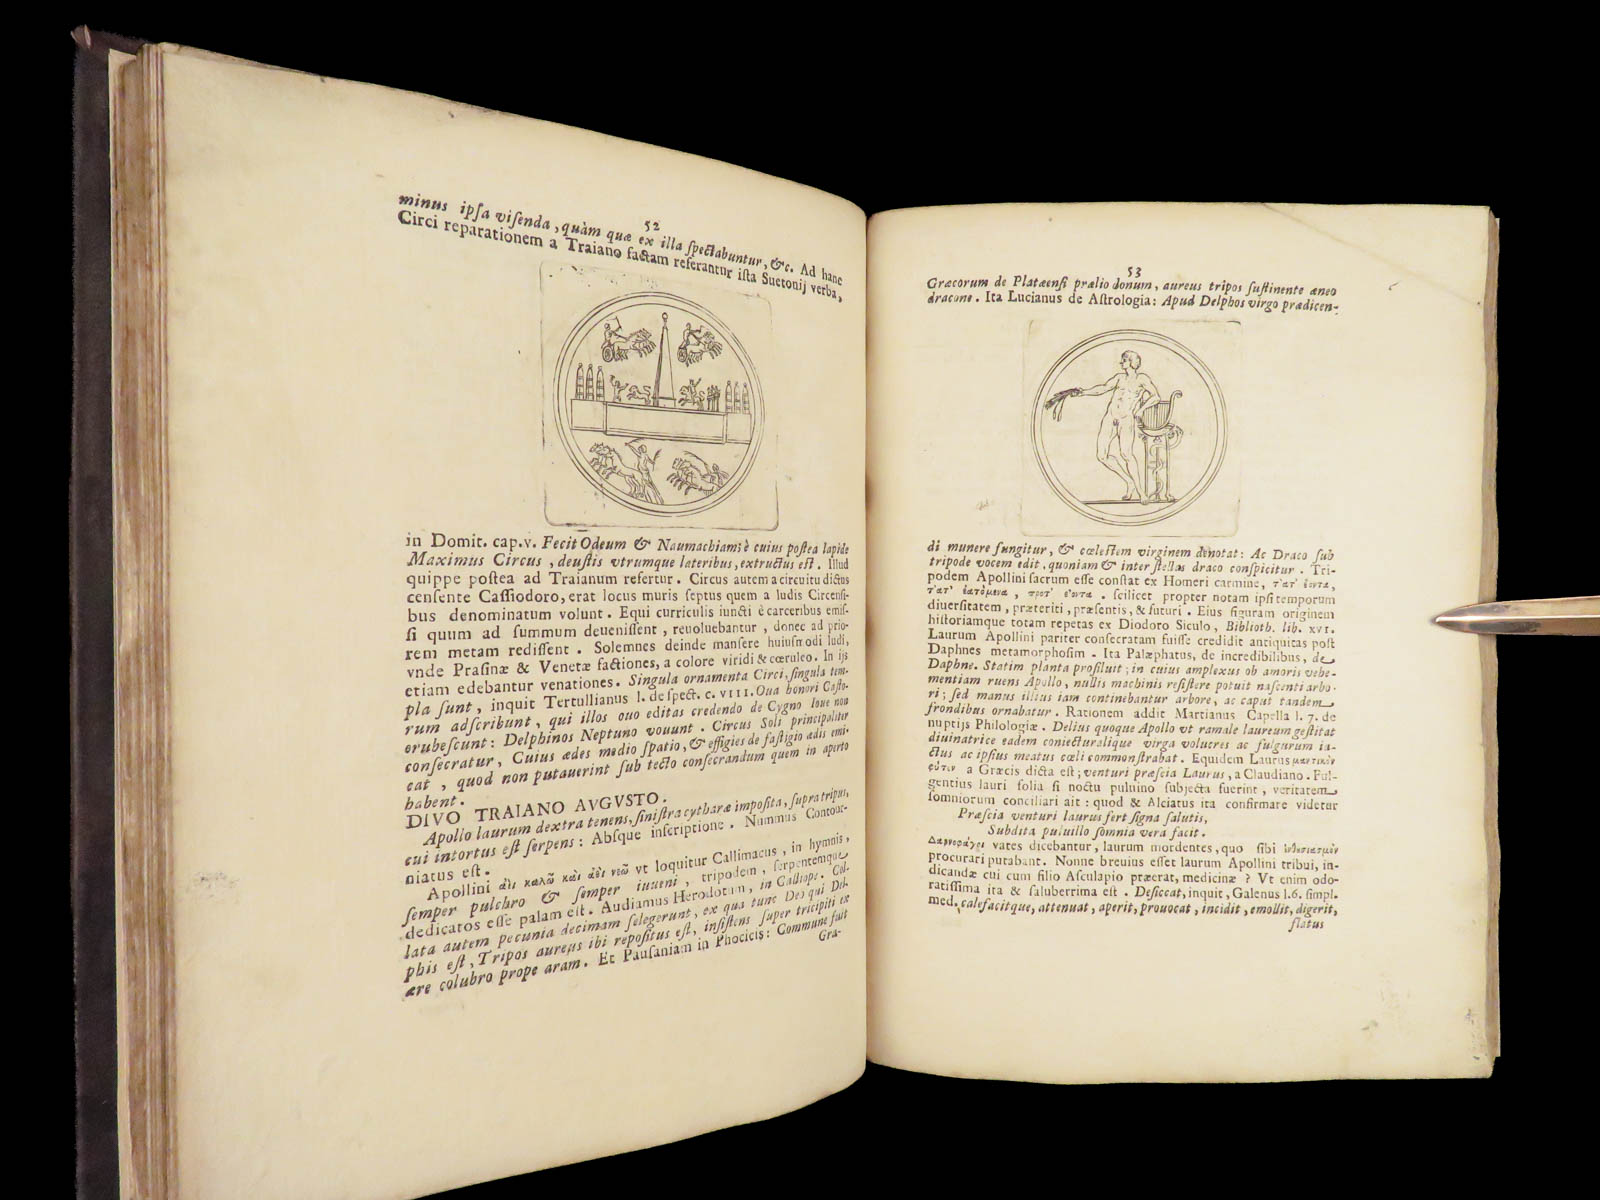 52
minus ipſa viſenda, quàm quæ ex illa ſpectabuntur, &c. Ad hanc
Circi reparationem a Traiano factam referantur iſta Suetonij verba,
in Domit. cap. v. Fecit Odeum & Naumachiam: è cuius poſtea lapide
Maximus Circus, deuſtis vtrumque lateribus, extructus eſt. Illud
quippe poſtea ad Traianum refertur. Circus autem a circuitu dictus
cenſente Caſſiodoro, erat locus muris ſeptus quem a ludis Circenſi-
bus denominatum volunt. Equi curriculis iuncti è carceribus emiſ-
ſi quum ad ſummum deueniſſent, reuoluebantur, donec ad prio-
rem metam rediſſent. Solemnes deinde manſere huiuſmodi ludi,
vnde Praſinæ & Venetæ factiones, a colore viridi & cœruleo. In ijs
etiam edebantur venationes. Singula ornamenta Circi, ſingula tem-
pla ſunt, inquit Tertullianus l. de ſpect. c. VIII. Oua honori Caſto-
rum adſcribunt, qui illos ouo editas credendo de Cygno Ioue non
erubeſcunt: Delphinos Neptuno vouunt. Circus Soli principaliter
conſecratur, Cuius ædes medio ſpatio, & effigies de faſtigio ædis emi-
cat, quod non putauerint ſub tecto conſecrandum quem in aperto
habent.
DIVO TRAIANO AVGVSTO.
Apollo laurum dextra tenens, ſiniſtra cytharæ impoſita, ſupra tripus,
cui intortus eſt ſerpens: Abſque inſcriptione. Nummus Contor-
niatus eſt.
Apollini ἀεὶ καλῶ καὶ ἀεὶ νεῶ vt loquitur Callimacus, in hymnis,
ſemper pulchro & ſemper iuueni, tripodem, ſerpentemque
dedicatos eſſe palam eſt. Audiamus Herodotum, in Calliope. Col-
lata autem pecunia decimam ſelegerunt, ex qua tunc Deo qui Del-
phis eſt, Tripos aureus ibi repoſitus eſt, inſiſtens ſuper tricipiti ex
ære colubro prope aram. Et Pauſaniam in Phocicis: Commune fuit
Gra-
53
Græcorum de Platæenſi prælio donum, aureus tripos ſuſtinente æneo
dracone. Ita Lucianus de Aſtrologia: Apud Delphos virgo prædicen-
di munere fungitur, & cœleſtem virginem denotat: Ac Draco ſub
tripode vocem edit, quoniam & inter ſtellas draco conſpicitur. Tri-
podem Apollini ſacrum eſſe conſtat ex Homeri carmine, τ'ατ' ἐοντα,
τ'ατ' ἐσσόμενα, προτ' ἐοντα. ſcilicet propter notam ipſi temporum
diuerſitatem, præteriti, præſentis, & futuri. Eius figuram originem
hiſtoriamque totam repetas ex Diodoro Siculo, Biblioth. lib. XVI.
Laurum Apollini pariter conſecratam fuiſſe credidit antiquitas poſt
Daphnes metamorphoſim. Ita Palæphatus, de incredibilibus, de
Daphne. Statim planta proſiluit; in cuius amplexus ob amoris vehe-
mentiam ruens Apollo, nullis machinis reſiſtere potuit naſcenti arbo-
ri; ſed manus illius iam continebantur arbore, ac caput tandem
frondibus ornabatur. Rationem addit Martianus Capella l. 7. de
nuptijs Philologiæ. Delius quoque Apollo vt ramale laureum geſtitat
diuinatrice eadem coniecturalique virga volucres ac fulgurum ia-
ctus ac ipſius meatus cœli commonſtrabat. Equidem Laurus μαντικὸν
φυτὸν a Græcis dicta eſt; venturi præſcia Laurus, a Claudiano. Ful-
gentius lauri folia ſi noctu puluino ſubjecta fuerint, veritatem
ſomniorum conciliari ait: quod & Alciatus ita confirmare videtur
Præſcia venturi laurus fert ſigna ſalutis,
Subdita puluillo ſomnia vera facit.
Δαφνηφάγοι vates dicebantur, laurum mordentes, quo ſibi ἐνθουσιασμὸν
procurari putabant. Nonne breuius eſſet laurum Apollini tribui, in-
dicandæ cui cum filio Aſculapio præerat, medicinæ? Vt enim odo-
ratiſſima ita & ſaluberrima eſt. Deſiccat, inquit, Galenus l. 6. ſimpl.
med. calefacitque, attenuat, aperit, prouocat, incidit, emollit, digerit,
flatus